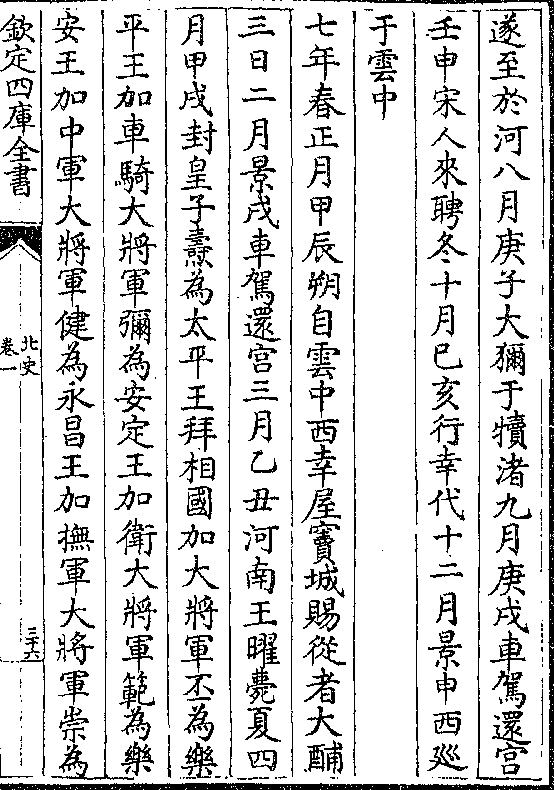 遂至於河八月庚子大獮于犢渚九月庚戌車駕還宮
壬申宋人來聘冬十月已亥行幸代十二月景申西廵
于雲中
七年春正月甲辰朔自雲中西幸屋竇城賜從者大酺
三日二月景戌車駕還宮三月乙丑河南王曜薨夏四
月甲戌封皇子燾為太平王拜相國加大將軍丕為樂
平王加車騎大將軍彌為安定王加衛大將軍範為樂
安王加中軍大將軍健為永昌王加撫軍大將軍崇為
欽定四庫全書
北史
卷一
三十六